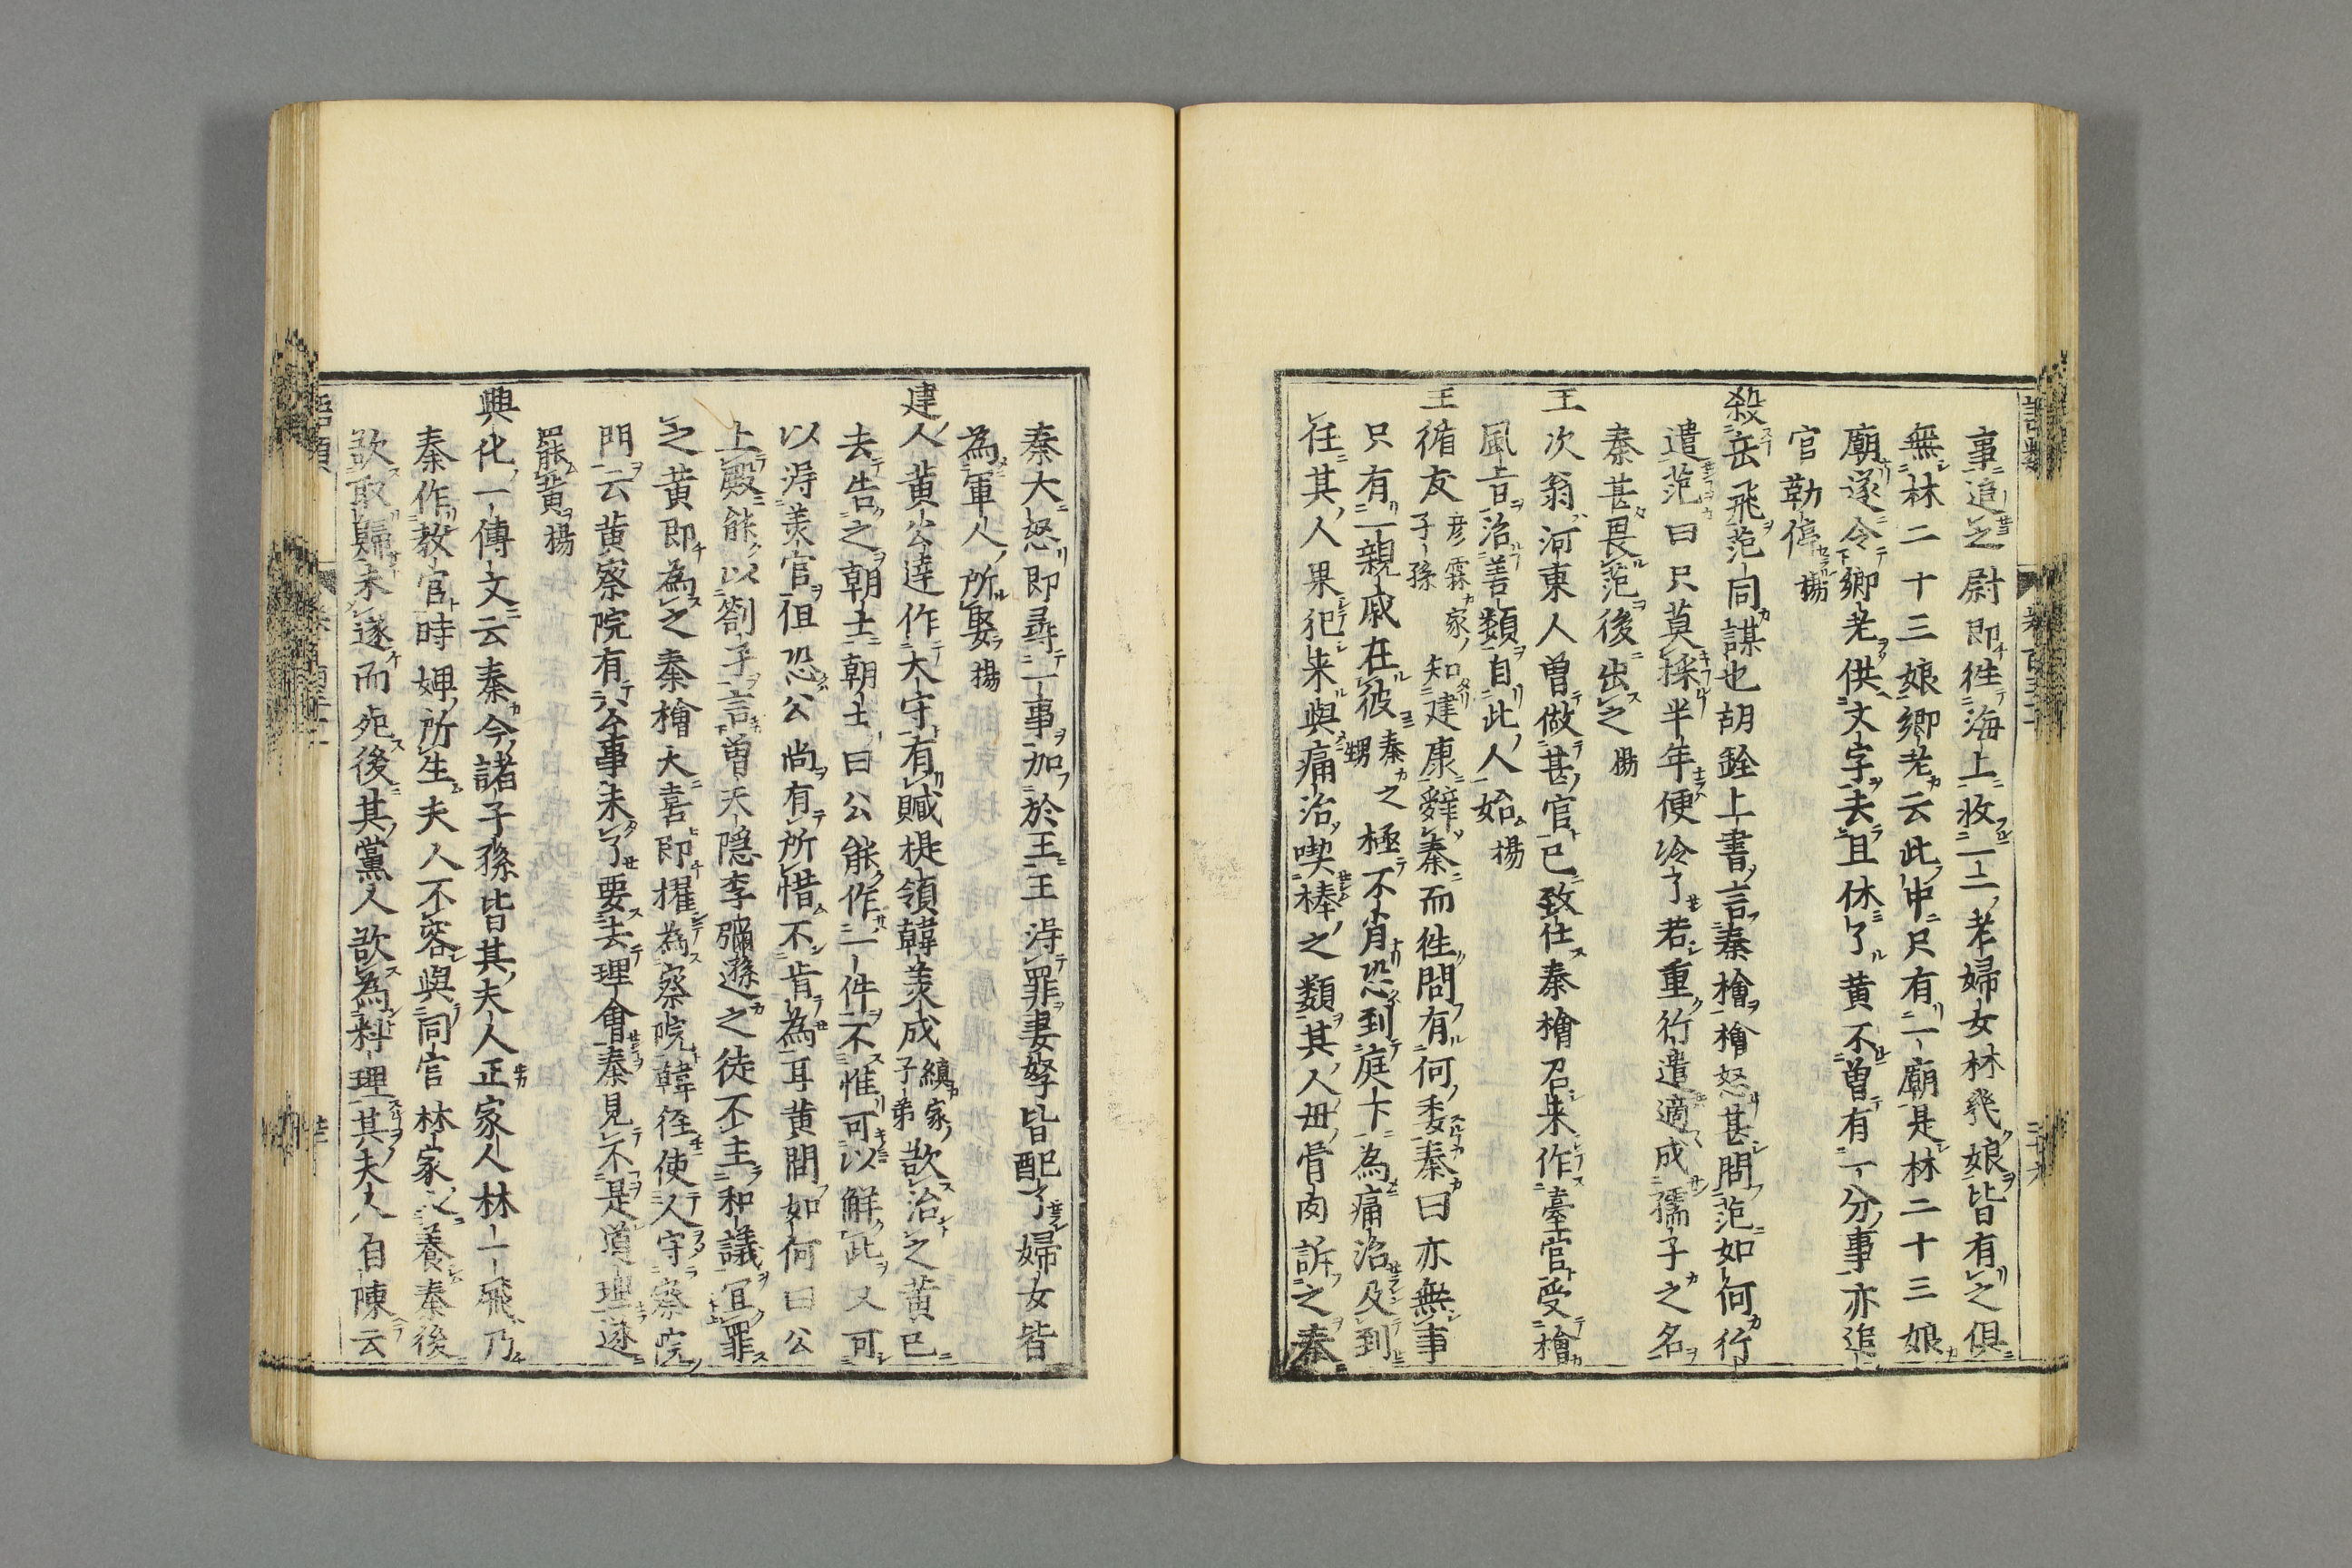 事追之尉即徃海上收一二老婦女林幾娘皆有之俱
無林二十三娘鄉老云此中只有一廟是林二十三娘
廟遂令鄉老供文字去且休了黄不曽有一分事亦追
官勒停揚
殺岳飛范同謀也胡銓上書言秦檜檜怒甚問范如何行
遣范曰只莫採半年便冷了若重行遣適成孺子之名
秦甚畏范後出之揚
王次翁河東人曽做甚官已致仕秦檜召来作臺官受檜
風㫖治善類自此人始揚
王循友彦霖家子孫知建康辭秦而徃問有何委秦曰亦無事
只有一親戚在彼秦之甥極不肖恐到庭下為痛治及到
任其人果犯来與痛治喫棒之類其人毋骨肉訴之秦
秦大怒即尋一事加於王王淂罪妻孥皆配了婦女皆
為軍人所娶揚
建人黄公達作大守有贓提領韓美成縝家子弟欲治之黄已
去告之朝士朝士曰公能作一件不惟可以解此又可
以淂美官但恐公尚有所惜不肯為耳黄問如何曰公
上殿能以劄子言曽天隠李彌遜之徒不主和議冝罪
之黄即為之秦檜大喜即擢為察院韓徑使人守察院
門云黄察院有公事未了要去理會秦見不是道理遂
罷黄揚
興化一傳文云秦今諸子孫皆其夫人正家人林一飛乃
秦作教官時婢所生夫人不容與同官林家之養秦後
欲取歸未遂而死後其黨人欲為料理其夫人自陳云